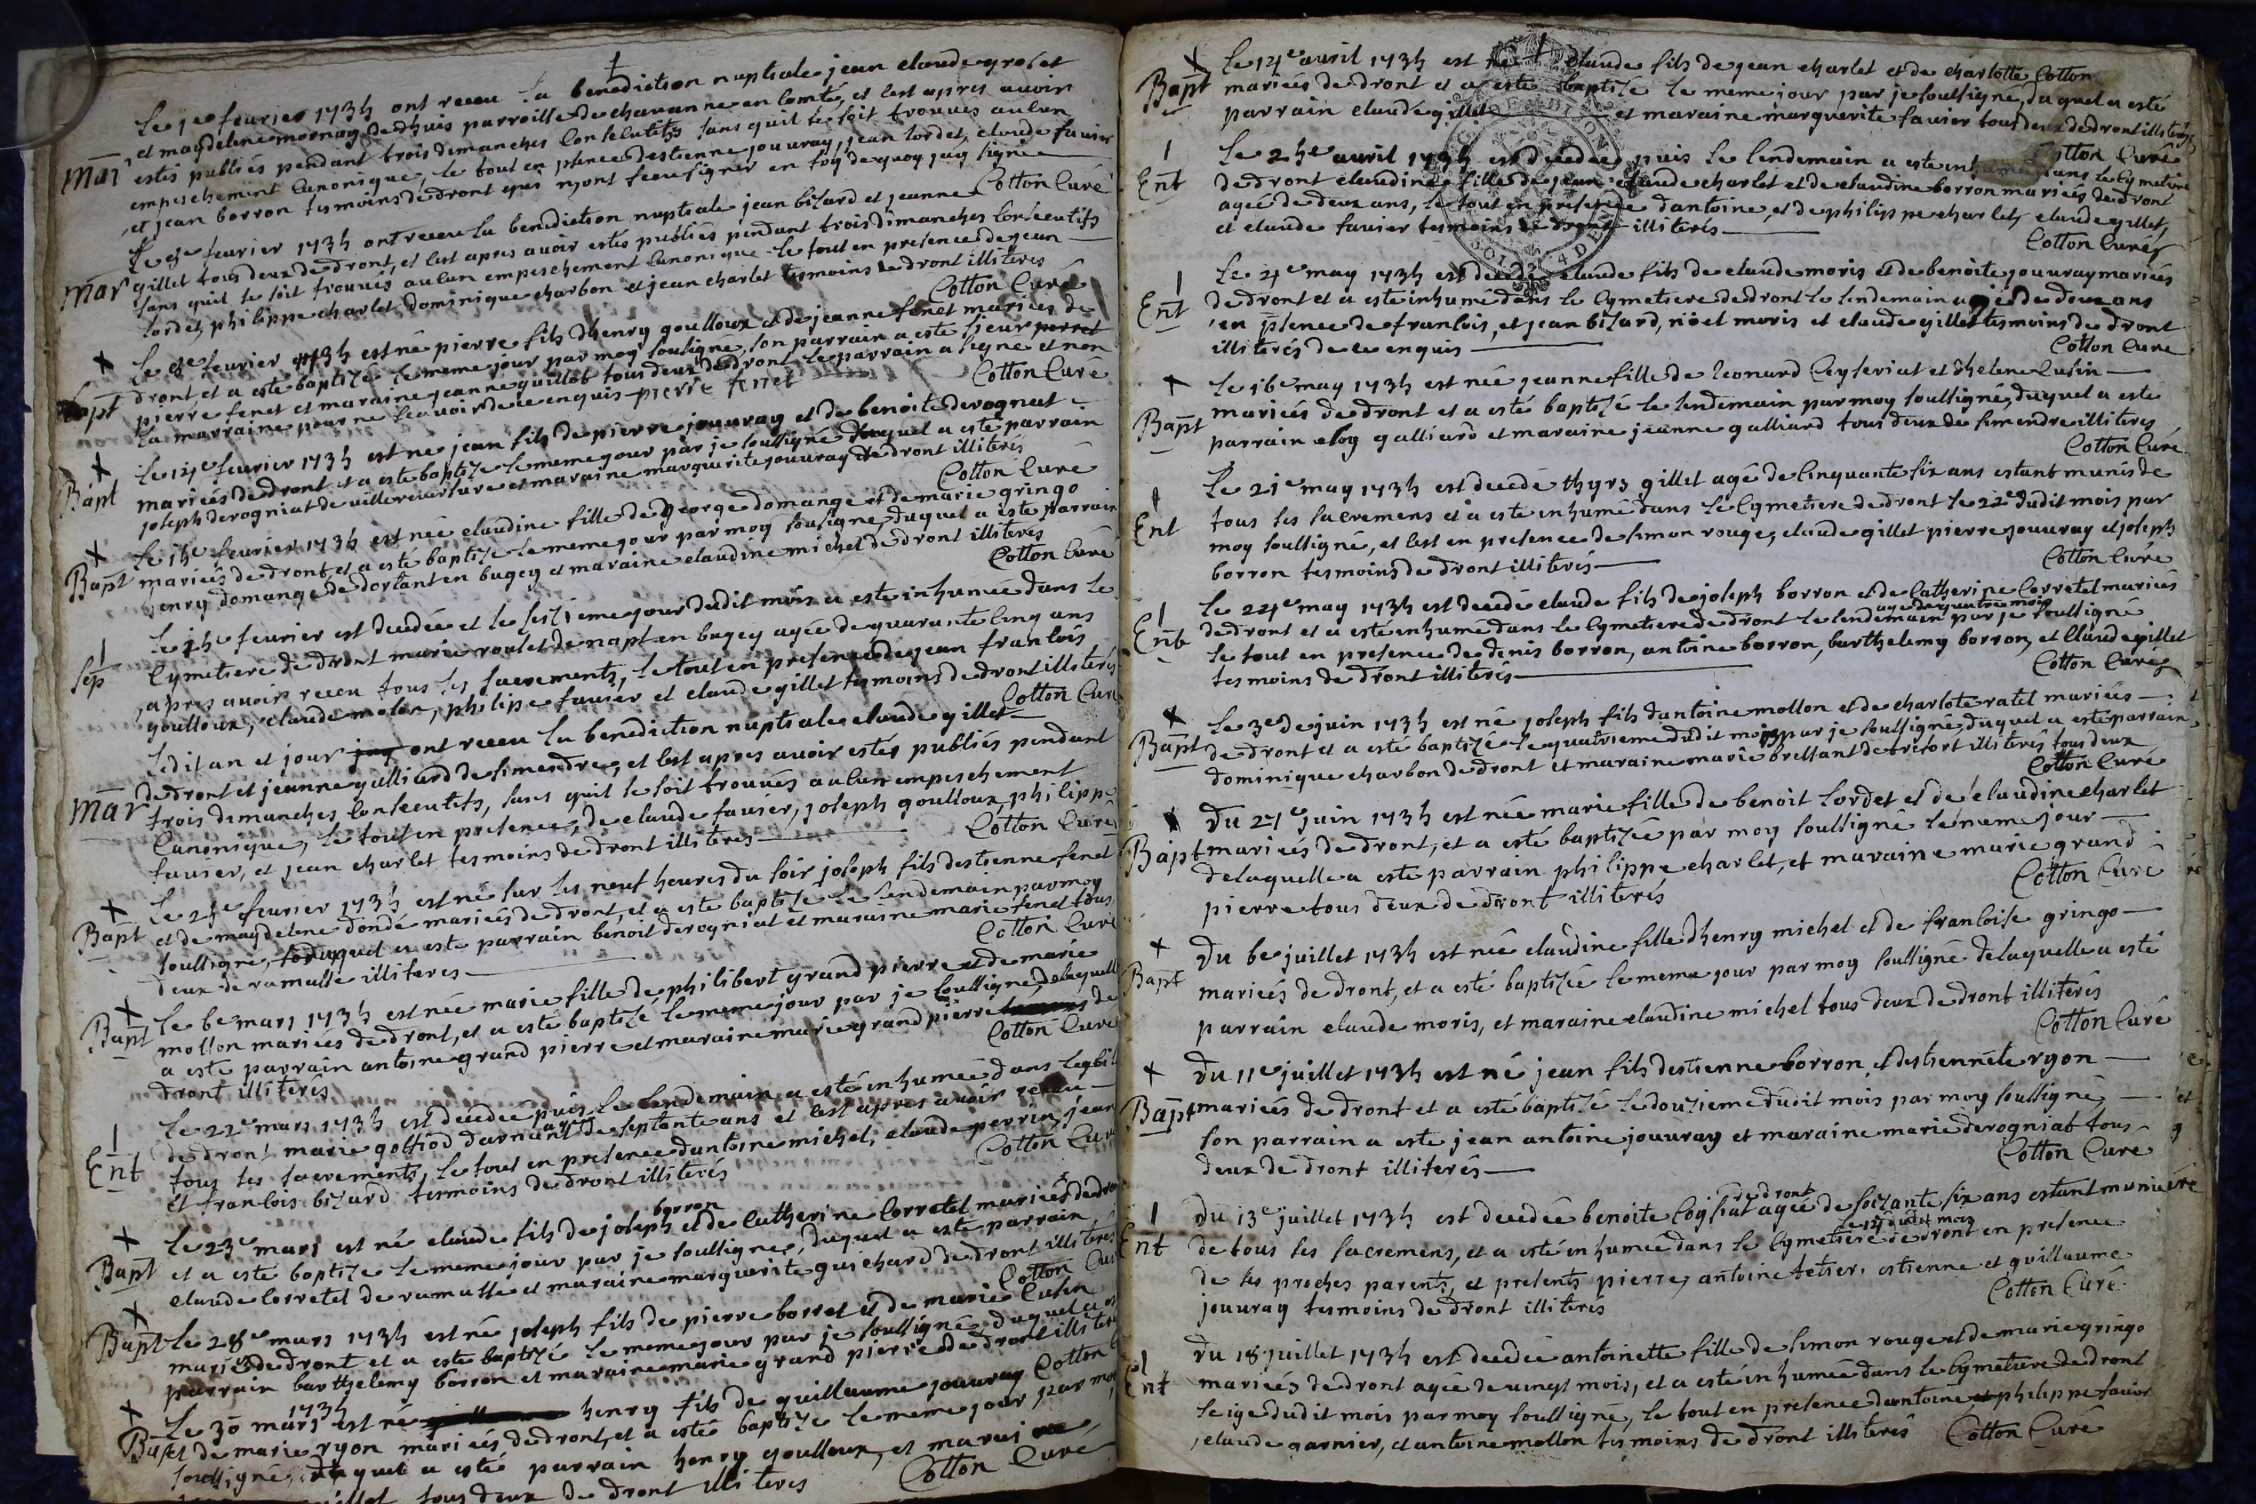 Le 1er feurier 1735 ont receu la benediction nuptiale jean claude grolet
et magdelene mornay de dhuis parroisse de chauanne en comté, et cest apres auoir
Mar
estés publiés pendant trois dimanches consecutifs sans quil se soit trouués aucun
empeschement canonique, le tout en presence destienne jouuray, jean cordet, claude fauier
et jean borron tesmoins de dront qui n'ont sceu signer en foy de quoy jay signé
Cotton Curé
Le feurier 1735 ont receu la benediction nuptiale jean bizard et jeanne
Mar
gillet tous deux de dront, et cest apres auoir estés publiés pendant trois dimanches consecutifs
sans quil se soit trouués aucun empeschement canonique le tout en presence de jean
cordet, philippe charlet dominique charbon et jean charlet tesmoins de dront illiterés
Cotton Curé
Le feurier 1735 est né pierre fils dhenry goulloux et de jeanne fenet mariées de
Bapt
dront et a esté baptizé le meme jour par moy soussigné, son parrain a esté sieur
pierre fenet et maraine jeanne guillot tous deux de dront, le parrain a signé et non
la marraine pour ne scauoir de ce enquis pierre fenet
Cotton Curé
Le 14e feurier 1735 est né jean fils de pierre jouuray et de benoite derogniat
Bapt
mariées de dront et a esté baptizé le meme jour par je soussigné duquel a esté parrain
joseph derogniat de villereuersure et maraine marguerite jouuray de dront illiterés
Cotton Curé
Le 15e feurier 1735 est née claudine fille de george domange et de marie gringo
Bapt
mariées de dront, et a esté baptizé le meme jour par moy sousigné, duquel a esté parrain
henry domange de dortant en bugey et maraine claudine michel de dront illiterés
Cotton Curé
Le 15e feurier est decedée et le sezieme jour dudit mois a esté inhumée dans le
Sep
cymetiere de dront marie roulet de napt en bugey agée de quarante cinq ans
apres auoir receu tous les sacrements, le tout en presence de jean francois
goulloux, claude molon, philipe fauier et claude gillet tesmoins de dront illiterés
Cotton Curé
Ledit an et jour ont receu la benediction nuptiale claude gillet
Mar
de dront et jeanne galliard de simandre, et cest apres auoir estés publiés pendant
trois dimanches consecutifs, sans quil se soit trouués aucun empeschement
canonique, le tout en presence, de claude fauier, joseph goulloux, philippe
fauier, et jean charlet tesmoins de dront illiterés
Cotton Curé
Le feurier 1735 est né sur les neuf heures du soir joseph fils destienne fenet
Bapt
et de magdelene dondé mariées de dront, et a esté baptizé le lendemain par moy
soussigné, duquel a esté parrain benoit derogniat et maraine marie fenet tous
deux de ramasse illiterés
Cotton Curé
Le 6e mars 1735 est née marie fille de philibert grand pierre et de marie
Bapt
mollon mariées de dront, et a esté baptizé le meme jour par je soussigné, de laquelle
a esté parrain antoine grand pierre et maraine marie grand pierre de
dront illiterés
Cotton Curé
Le 22e mars 1735 est decedée puis le lendemain a esté inhumée dans
Ent
de dront marie goffiod darnant de septante ans et cest apres auoir receu
tous les sacrements, le tout en presence dantoine michel, claude perrin, jean
et francois bizard tesmoins de dront illiterés
Cotton Curé
Le 23e mars est né claude fils de joseph borron et de catherine corretel mariées de dront
Bapt
et a esté baptizé le meme jour par je soussigné, duquel a esté parrain
claude corretel de ramasse et maraine marguerite guichard de dront illiterés
Cotton Curé
Le 28e mars 1735 est né joseph fils de pierre borret et de marie cusin
Bapt
mariés de dront et a esté baptizé le meme jour par je soussigné duquel a esté
parrain barthelemy borron et maraine marie grand pierre de dront illiterés
Cotton
Le 30 mars 1735 est né henry fils de guillaume jouuray
Bapt
et de marie ryon mariées de dront, et a esté baptizé le meme jour par moy
soussigné, duquel a esté parrain henry goulloux, et marai
tous deux de dront illiterés
Cotton Curé
Le 14e auril 1735 est né claude fils de jean charlet et de charlotte Cotton
Bapt
mariées de dront et a esté baptizé le meme jour par je soussigné, duquel a esté
parrain claude gillet et maraine marguerite fauier tous deux de dront illiterés
Cotton Curé
Le 25e auril 1735 est decedée puis le lendemain a esté inhumée dans le cymetiere
Ent
de dront claudine fille de jean claude charlet et de claudine borron mariées de dront
agée de deux ans, le tout en presence dantoine, et de philippe charlet, claude gillet,
et claude fauier tesmoins de dront illiterés
Cotton Curé
Le 4e may 1735 est decedé claude fils de claude moris et de benoite jouuray mariées
Ent
de dront et a esté inhumé dans le cymetiere de dront le lendemain agé de deux ans
en presence de francois, et jean bizard, noel moris et claude gillet tesmoins de dront
illiterés de ce enquis
Cotton Curé
Le 16e may 1735 est née jeanne fille de leonard Ceyseriat et dhelene Cusin
Bapt
mariées de dront et a esté baptizé le lendemain par moy soussigné, duquel a esté
parrain eloy galliard et maraine jeanne galliard tous deux de simandre illiterés
Cotton Curé
Le 21e may 1735 est decedé thyrs gillet agé de cinquante six ans estant munis de
Ent
tous les sacremens et a esté inhumé dans le cymetiere de dront le 22e dudit mois par
moy soussigné, et cest en presence de simon rouge, claude gillet pierre jouuray et joseph
borron tesmoins de dront illiterés
Cotton Curé
Le 24e may 1735 est decedé claude fils de joseph borron et de catherine Corretel mariées
Ent
de dront et a esté inhumé dans le cymetiere de dront le lendemain agé de quatre mois par je soussigné
le tout en presence de denis borron, antoine borron, barthelemy borron, et claude gillet
tesmoins de dront illiterés
Cotton Curé
Le 3e de juin 1735 est né joseph fils dantoine mollon et de charlote ratel mariées
Bapt
de dront et a esté baptizé le quatrieme dudit mois par je soussigné, duquel a esté parrain
dominique charbon de dront et maraine marie bressant de tresort illiterés tous deux
Cotton Curé
Du 27e juin 1735 est née marie fille de benoit cordet et de claudine charlet
Bapt
mariées de dront, et a esté baptizée par moy soussigné le meme jour
de laquelle a esté parrain philippe charlet, et maraine marie grand
pierre tous deux de dront illiterés
Cotton Curé
Du 6e juillet 1735 est née claudine fille dhenry michel et de francoise gringo
Bapt
mariées de dront, et a esté baptizée le meme jour par moy soussigné de laquelle a esté
parrain claude moris, et maraine claudine michel tous deux de dront illiterés
Cotton Curé
Du 11e juillet 1735 est né jean fils destienne borron et destiennete ryon
Bapt
mariées de dront et a esté baptizé le douzieme dudit mois par moy soussigné,
son parrain a esté jean antoine jouuray et maraine marie derogniat tous
deux de dront illiterés
Cotton Curé
Du 13e juillet 1735 est decedée benoite de dront agée de soizante six ans estant munie
Ent
de tous les sacremens, et a esté inhumée dans le cymetiere de dront le 14 dudit mois en presence
de ses proches parents, et presents pierre, antoine tetier, estienne et guillaume
jouuray tesmoins de dront illiterés
Cotton Curé
Du 18 juillet 1735 est decedée antoinette fille de simon rouge et de marie gringo
Ent
mariées de dront agée de uingt mois, et a esté inhumée dans le cymetiere de dront
le 19e dudit mois par moy soussigné, le tout en presence dantoine philippe fauier
claude garnier, et antoine mollon tesmoins de dront illiterés Cotton Curé